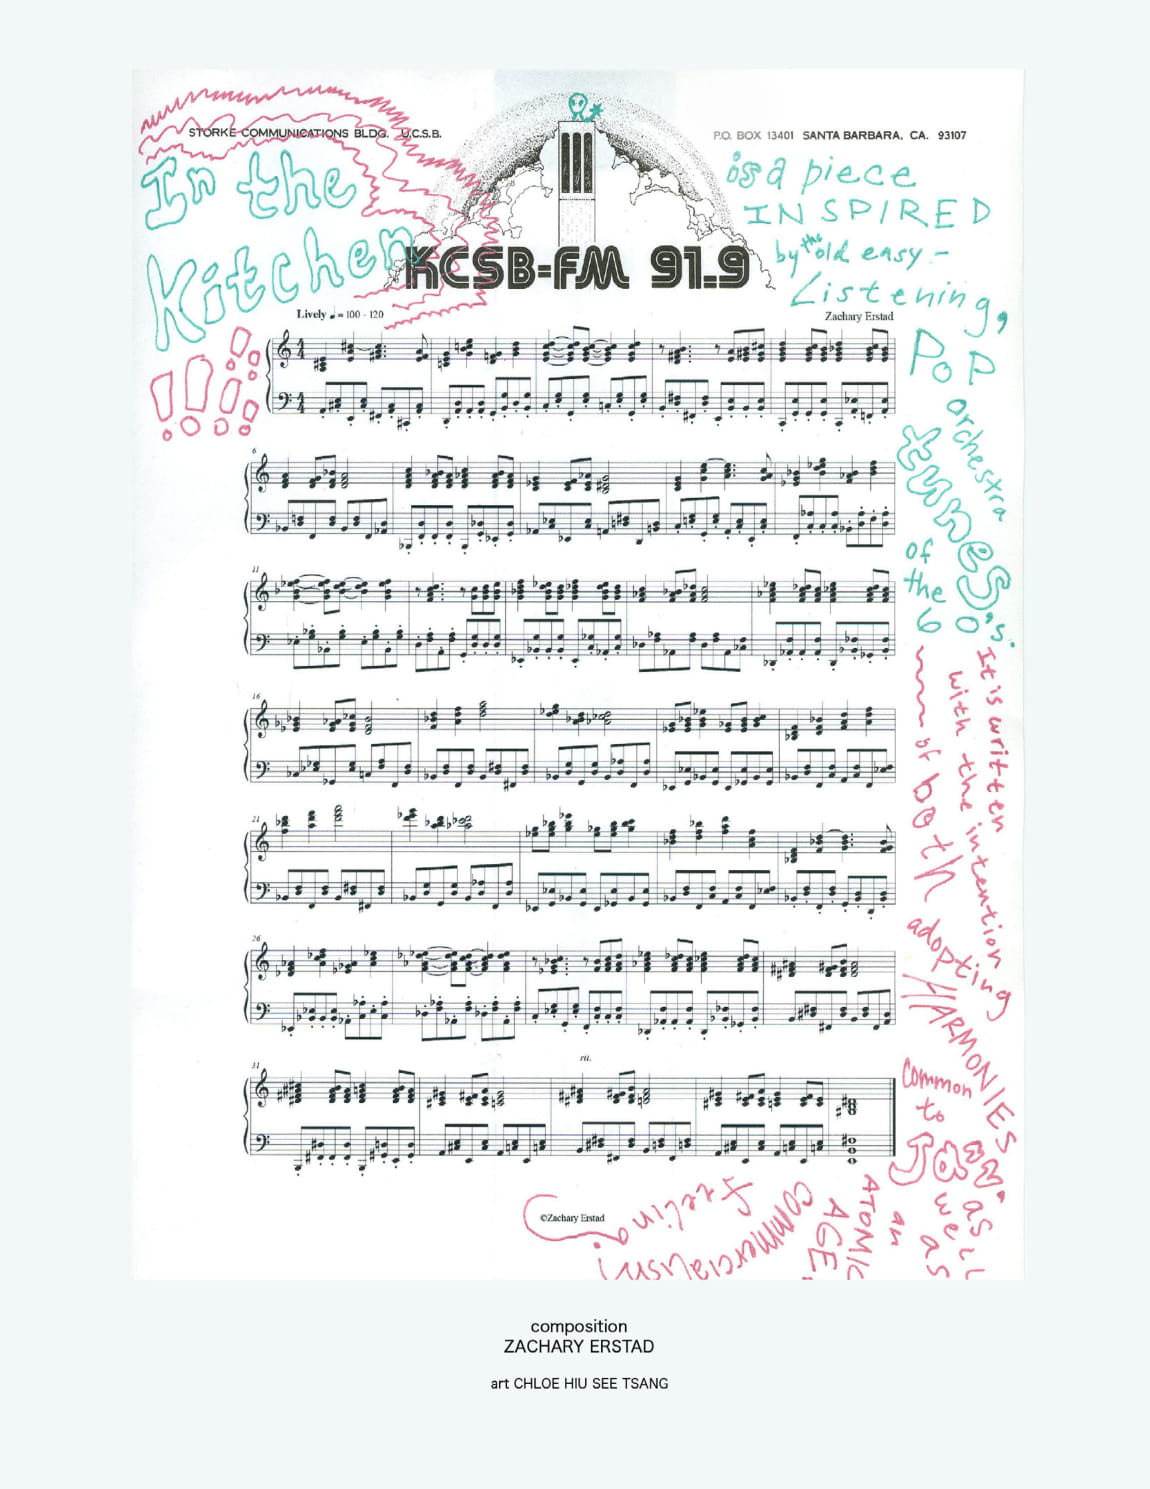 STORKE COMMUNICATIONS BLDG. U.C.S.B.
P.O. BOX 13401 SANTA BARBARA, CA. 93107
In the
Kitchen
!!!!
KCSB-FM 91.9
is a piece
INSPIRED
by the old easy-
Listening,
POP
orchestra
tunes
of
the
60's.
It is written
with the intention
of both
adopting
HARMONIES
common
to
Jazz.
as
well
as
an
ATOMIC
AGE
commercialish
Feeling
Lively ♩ = 100 - 120
Zachary Erstad
6
11
16
21
26
31
rit.
©Zachary Erstad
composition
ZACHARY ERSTAD
art CHLOE HIU SEE TSANG